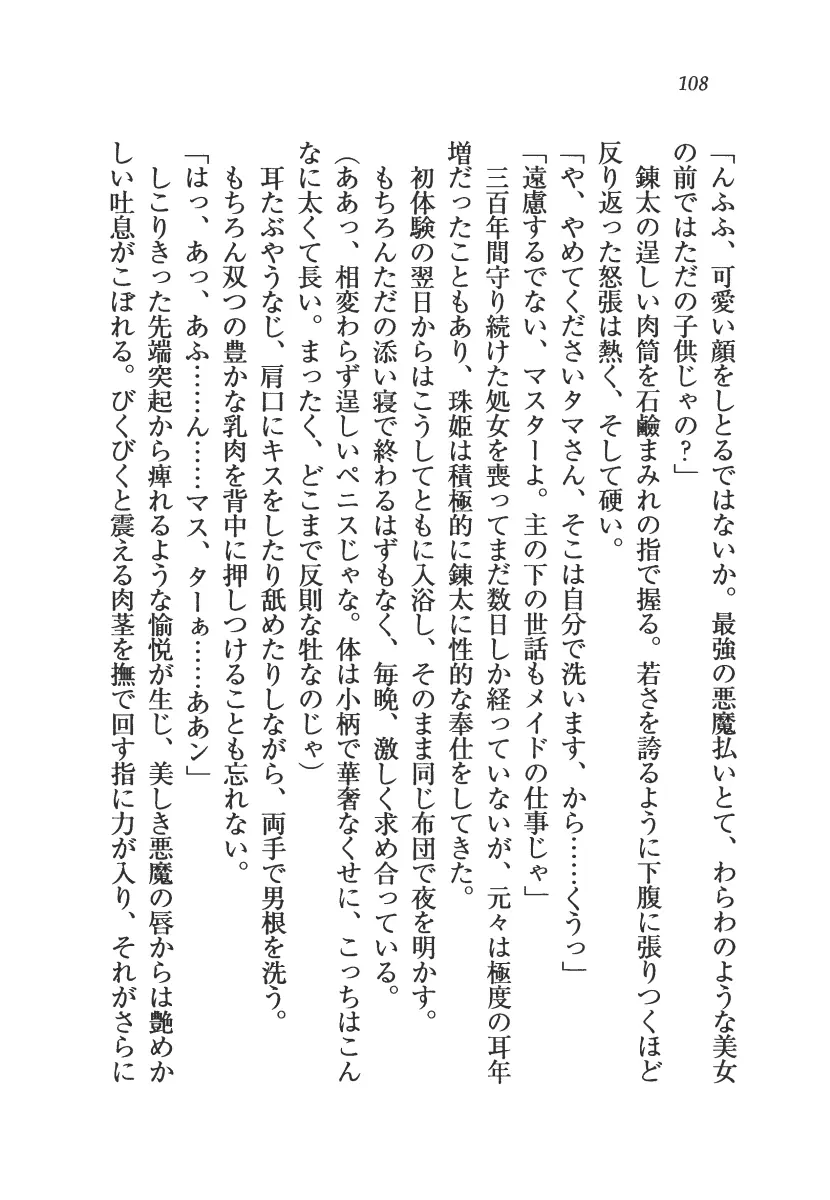 108
「んふふ、可愛い顔をしとるではないか。最強の悪魔払いとて、わらわのような美女
の前ではただの子供じゃの？」
錬太の逞しい肉筒を石鹼まみれの指で握る。若さを誇るように下腹に張りつくほど
反り返った怒張は熱く、そして硬い。
「や、やめてくださいタマさん、そこは自分で洗います、から……くうっ」
「遠慮するでない、マスターよ。主の下の世話もメイドの仕事じゃ」
三百年間守り続けた処女を喪ってまだ数日しか経っていないが、元々は極度の耳年
増だったこともあり、珠姫は積極的に錬太に性的な奉仕をしてきた。
初体験の翌日からはこうしてともに入浴し、そのまま同じ布団で夜を明かす。
もちろんただの添い寝で終わるはずもなく、毎晩、激しく求め合っている。
（ああっ、相変わらず逞しいペニスじゃな。体は小柄で華奢なくせに、こっちはこん
なに太くて長い。まったく、どこまで反則な牡なのじゃ）
耳たぶやうなじ、肩口にキスをしたり舐めたりしながら、両手で男根を洗う。
もちろん双つの豊かな乳肉を背中に押しつけることも忘れない。
「はっ、あっ、あふ……ん……マス、ターぁ……ああン」
しこりきった先端突起から痺れるような愉悦が生じ、美しき悪魔の唇からは艶めか
しい吐息がこぼれる。びくびくと震える肉茎を撫で回す指に力が入り、それがさらに